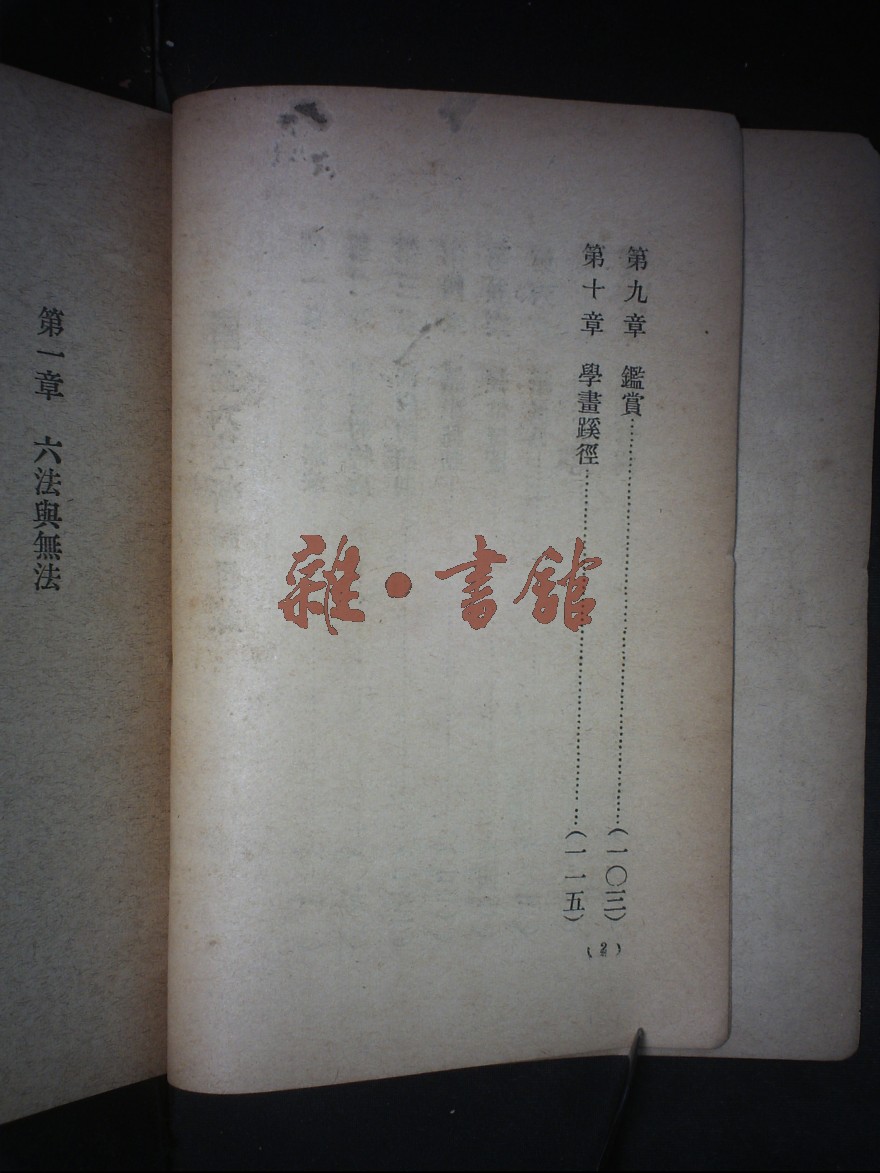 第九章　鑑賞……………………(一〇三)
第十章　學畫蹊徑……………………(一一五)
(2)
第一章　六法與無法
雜·書館